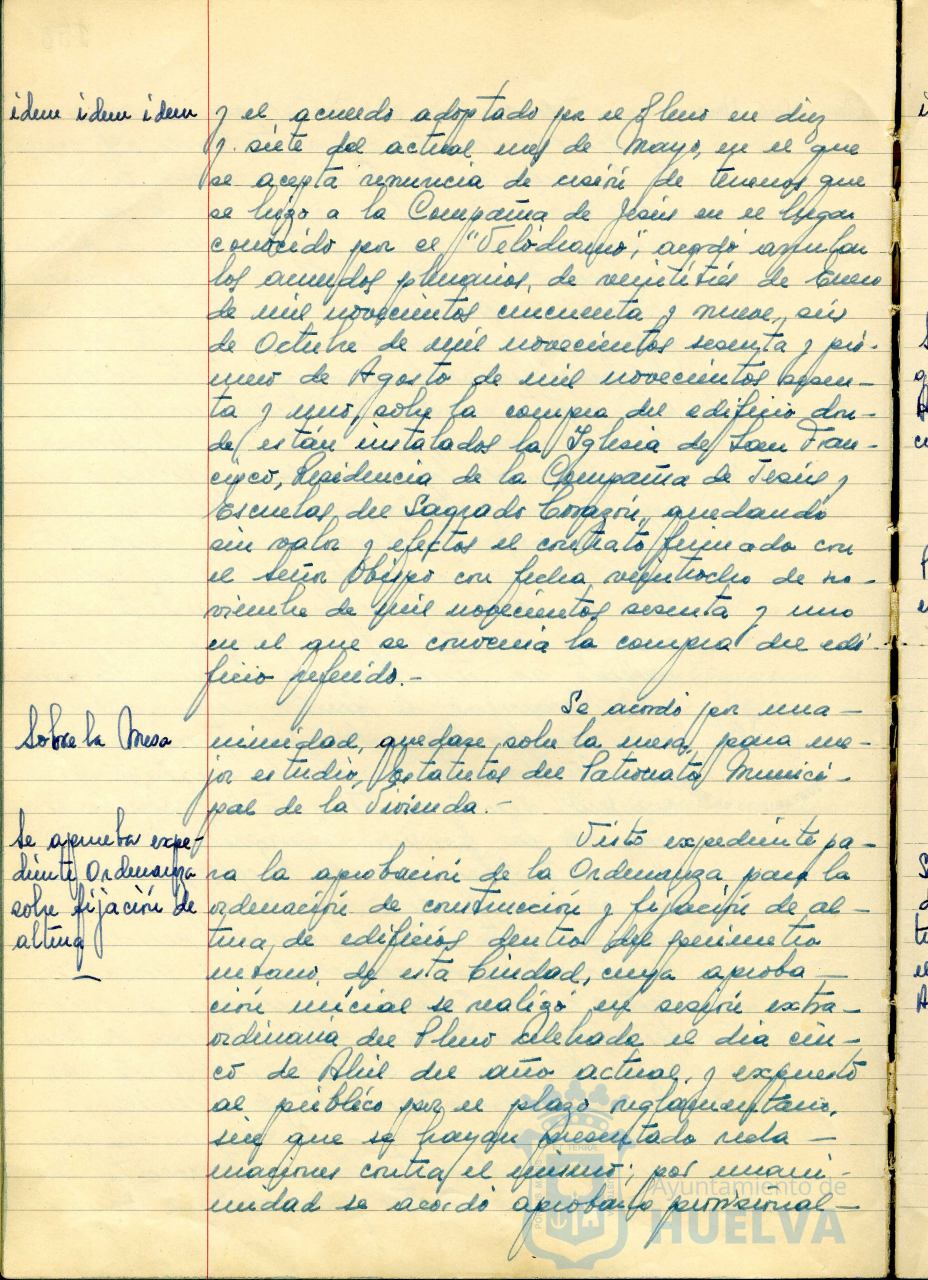 idem idem idem
y el acuerdo adoptado por el Pleno en diez
y siete del actual mes de Mayo, en el que
se acepta renuncia de cesión de terrenos que
se hizo a la Compañia de Jesús en el lugar
conocido por el "Velódromo", acordó anular
los acuerdos plenarios, de veintitrés de Enero
de mil novecientos cincuenta y nueve, seis
de Octubre de mil novecientos sesenta y pri-
mero de Agosto de mil novecientos sesen-
ta y uno, sobre la compra del edificio don-
de están instalados la Iglesia de San Fran-
cisco, Residencia de la Compañia de Jesús y
Escuelas del Sagrado Corazón, quedando
sin valor y efectos el contrato firmado con
el Señor Obispo con fecha veintiocho de no-
viembre de mil novecientos sesenta y uno
en el que se convenia la compra del edi-
ficio referido.-
Sobre la Mesa
Se acordó por una-
nimidad, quedase sobre la mesa, para me-
jor estudio, Estatutos del Patronato Munici-
pal de la Vivienda.-
Se aprueba expe-
diente Ordenanza
sobre fijación de
altura
Visto expediente pa-
ra la aprobación de la Ordenanza para la
ordenación de construcción y fijación de al-
tura de edificios dentro del perimetro
urbano, de esta Ciudad, cuya aproba-
ción inicial se realizó en sesión extra-
ordinaria del Pleno celebrada el dia cin-
co de Abril del año actual, y expuesto
al público por el plazo reglamentario,
sin que se hayan presentado recla-
maciones contra el mismo; por unani-
midad se acordó aprobarlo provisional-
Ayuntamiento de
HUELVA